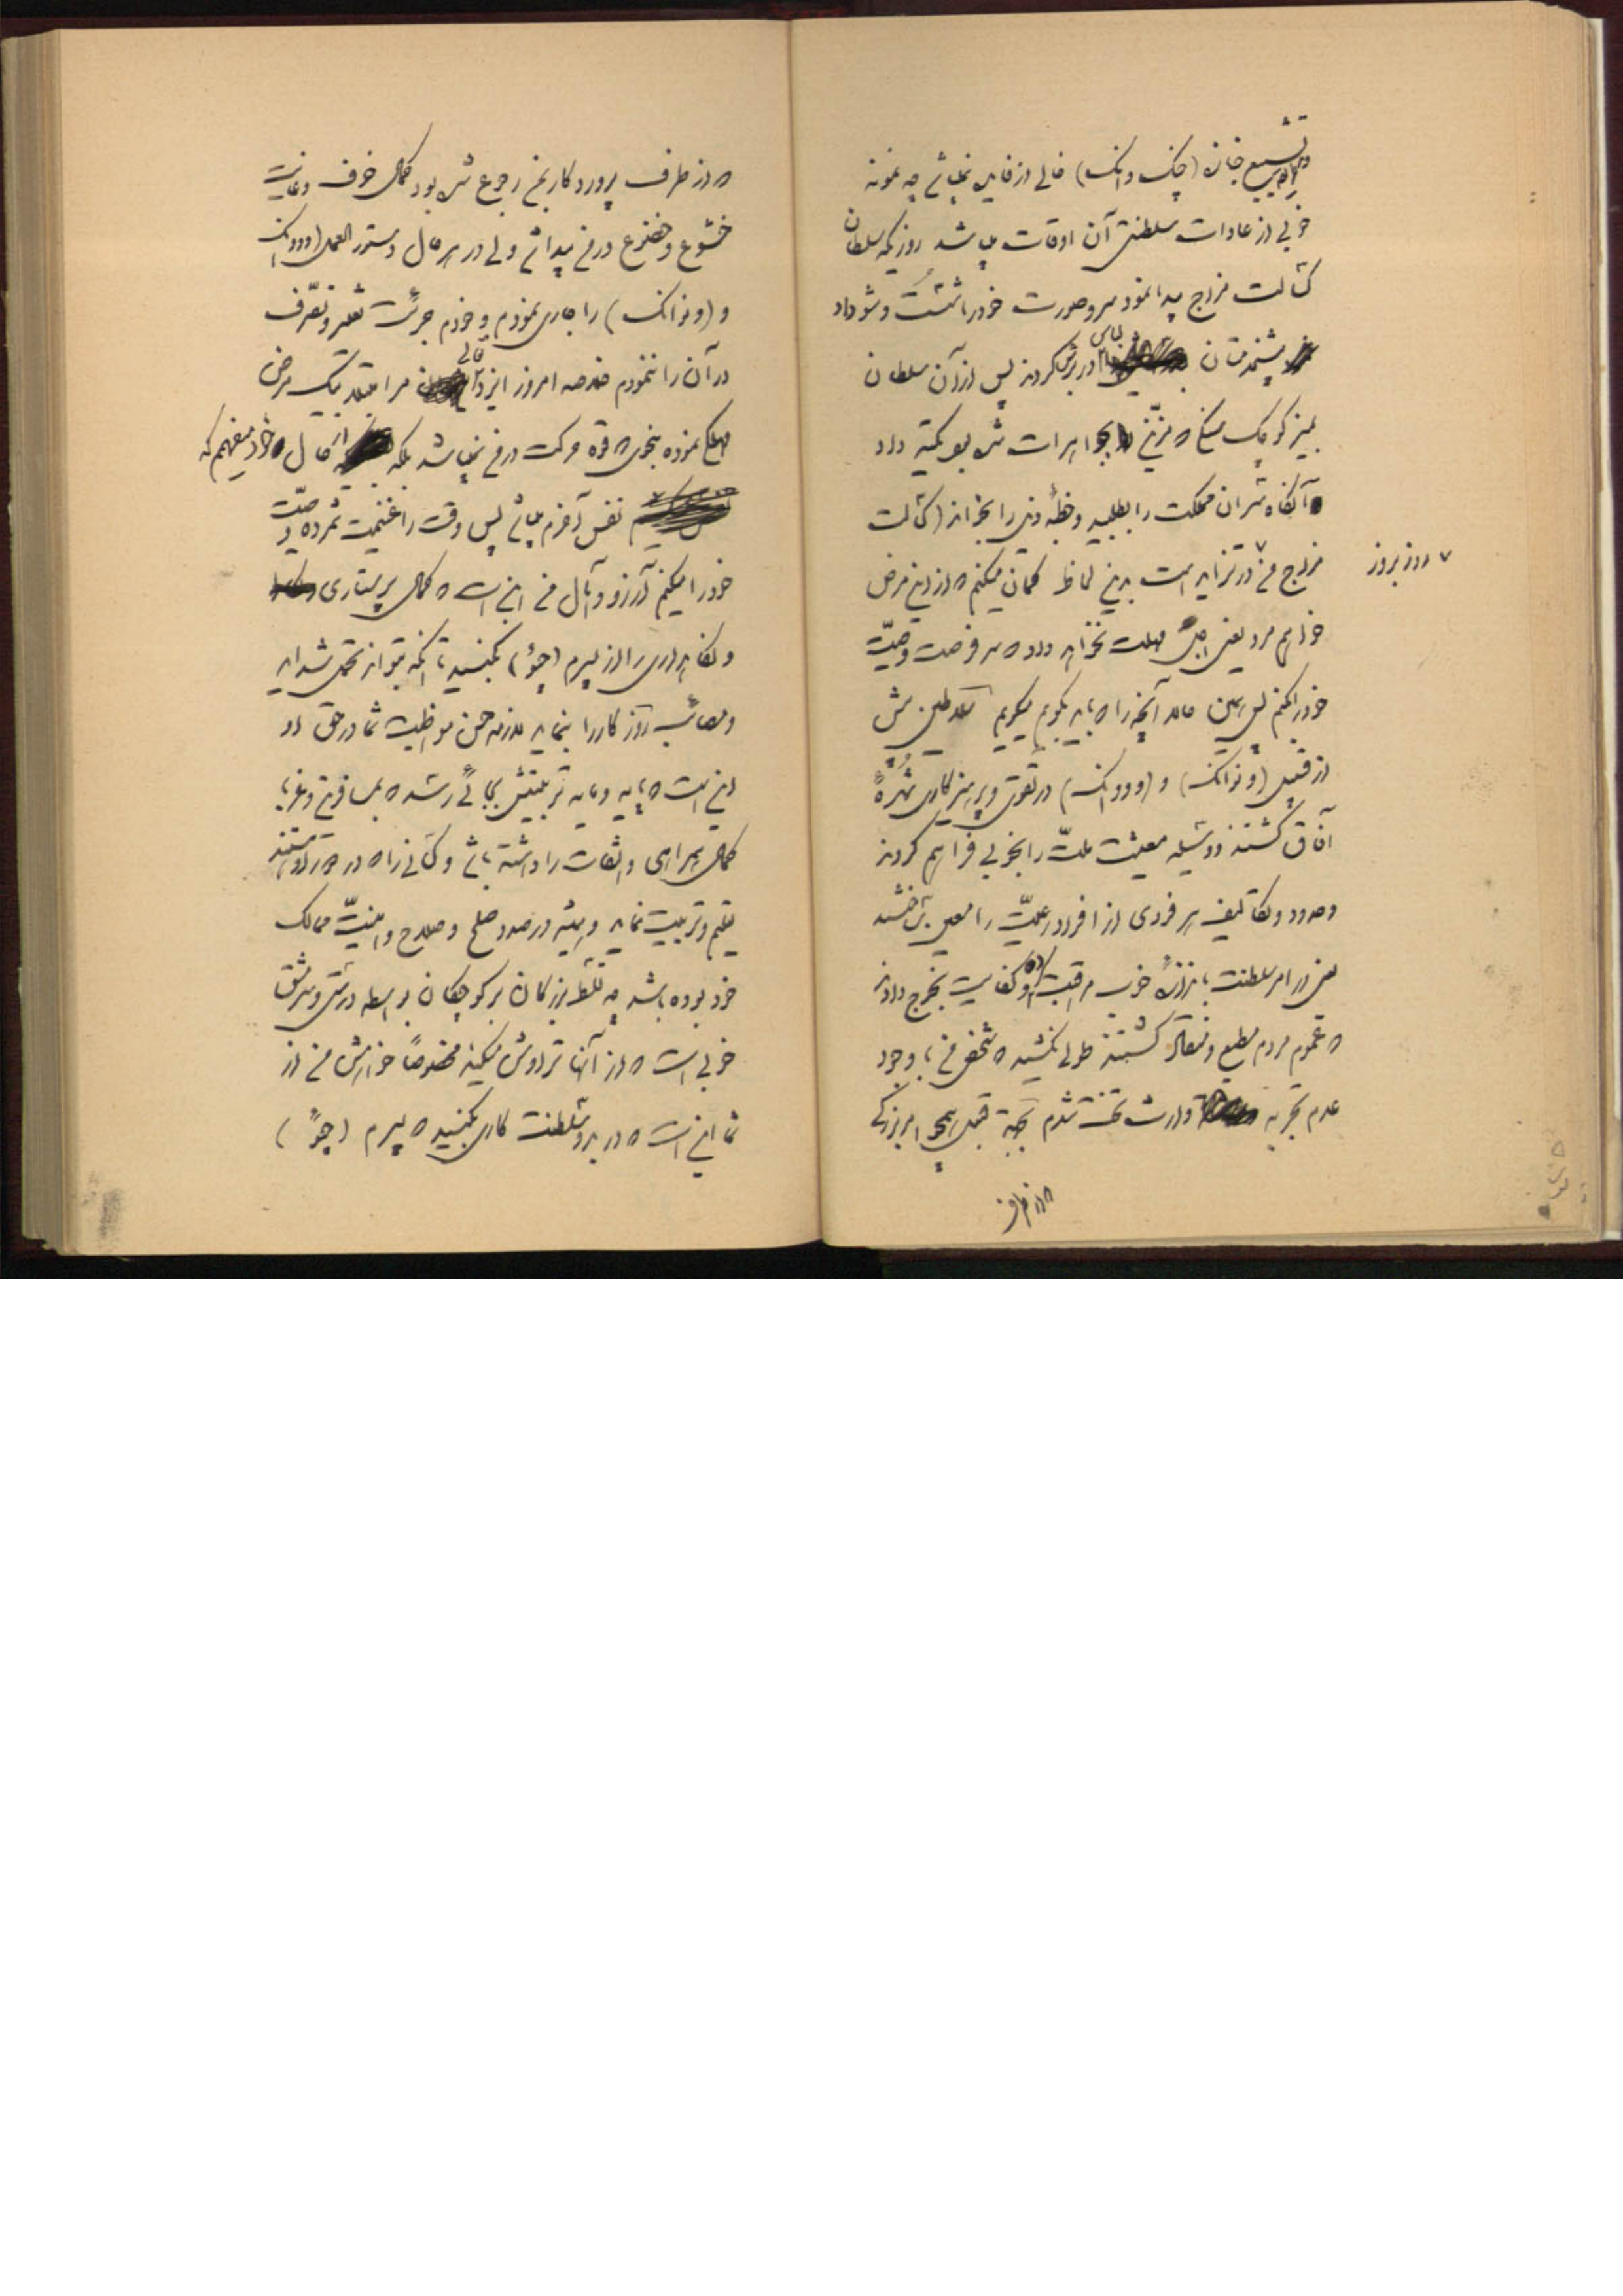 تشییع جنازه (چنک وانک) خالی از فایده نمیباشد چه نمونه
خوبی از عادات سلطنتی آن اوقات میباشد روزیکه سلطان
کسالت مزاج پیدا نمود سر و صورت خود را شست و شو داد
پیشخدمتان لباس در برش کردند پس از آن سلطان
بمیز کوچک که مزین بجواهرات شده بود تکیه داد
آنگاه سران مملکت را بطلبید و خطبه ذیل را بخواند (کسالت
مزاج من روز بروز در تزاید است بدین لحاظ گمان میکنم که از این مرض
خواهم مرد یعنی اجل مهلت نخواهد داد که سر فرصت وصیت
خود را بکنم پس همین حالا آنچه را که باید بگویم میگویم سلاطین پیش
از قبیل (ونوانک) و (وووانک) در تقوی و پرهیزکاری شهره
آفاق گشتند و وسیله معیشت ملت را بخوبی فراهم کردند
وحدود و تکالیف هر فردی از افراد رعیت را معین
در امر سلطنت باندازه خوب مراقبت و کفایت بخرج دادند
که عموم مردم مطیع و منقاد گشتند طولی نکشید که شخص من با وجود
عدم تجربه وارث تخت شدم بجهة قبول همچو امر بزرگی
که از طرف
که از طرف پروردگار بمن رجوع شده بود کمال خوف و غایت
خشوع و خضوع در من پیدا شد ولی در هر حال دستور العمل (وووانک)
و (ونوانک) را جاری نمودم و خودم جرئت تغییر و تصرف
در آن را ننمودم خلاصه امروز ایزد متعالی مرا مبتلا بیک مرض
مهلک نموده بنحوی که قوه حرکت در من نمیباشد بلکه از حال خود میفهمم که
نفس آخرم میباشد پس وقت را غنیمت شمرده وصیت
خود را میکنم آرزو و آمال من این است که کمال پرستاری
و نگاهداری را از پسرم (چؤ) بکنید تا آنکه بتواند تحمل شداید
و مصائب روزگار را بنماید لازمه حسن مواظبت شما در حق او
این است که باید و شاید تربیتش بجائی رسد که بمسافرین و غربا
کمال همراهی و التفات را داشته باشد و کسانی را که در
تعلیم و تربیت نماید و همیشه در صدد صلح و صلاح و امنیت ممالک
خود بوده باشد چه تسلط بزرگان بر کوچکان بواسطه درستی و سرمشق
خوبی است که از آنها تراوش میکند مخصوصاً خواهش من از
شما این است که در بدو سلطنت کاری بکنید که پسرم (چؤ)